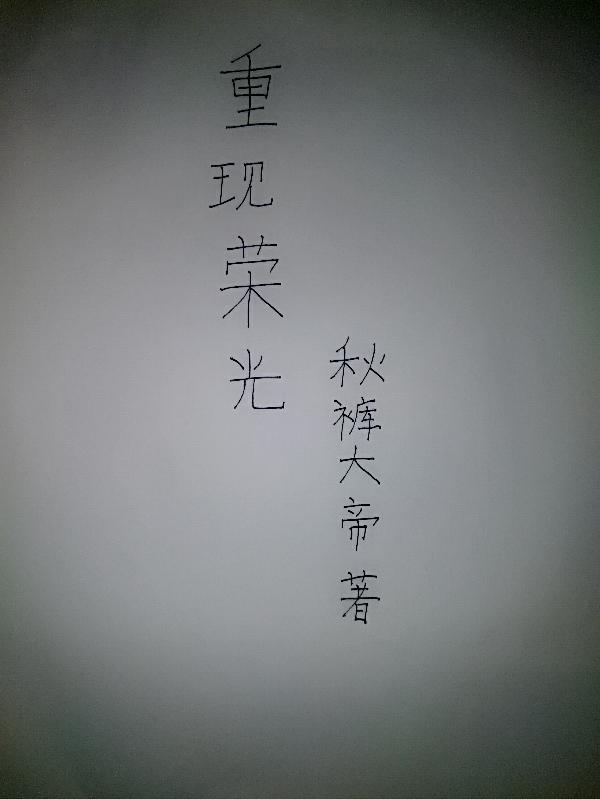 重现荣光
秋裤大帝著